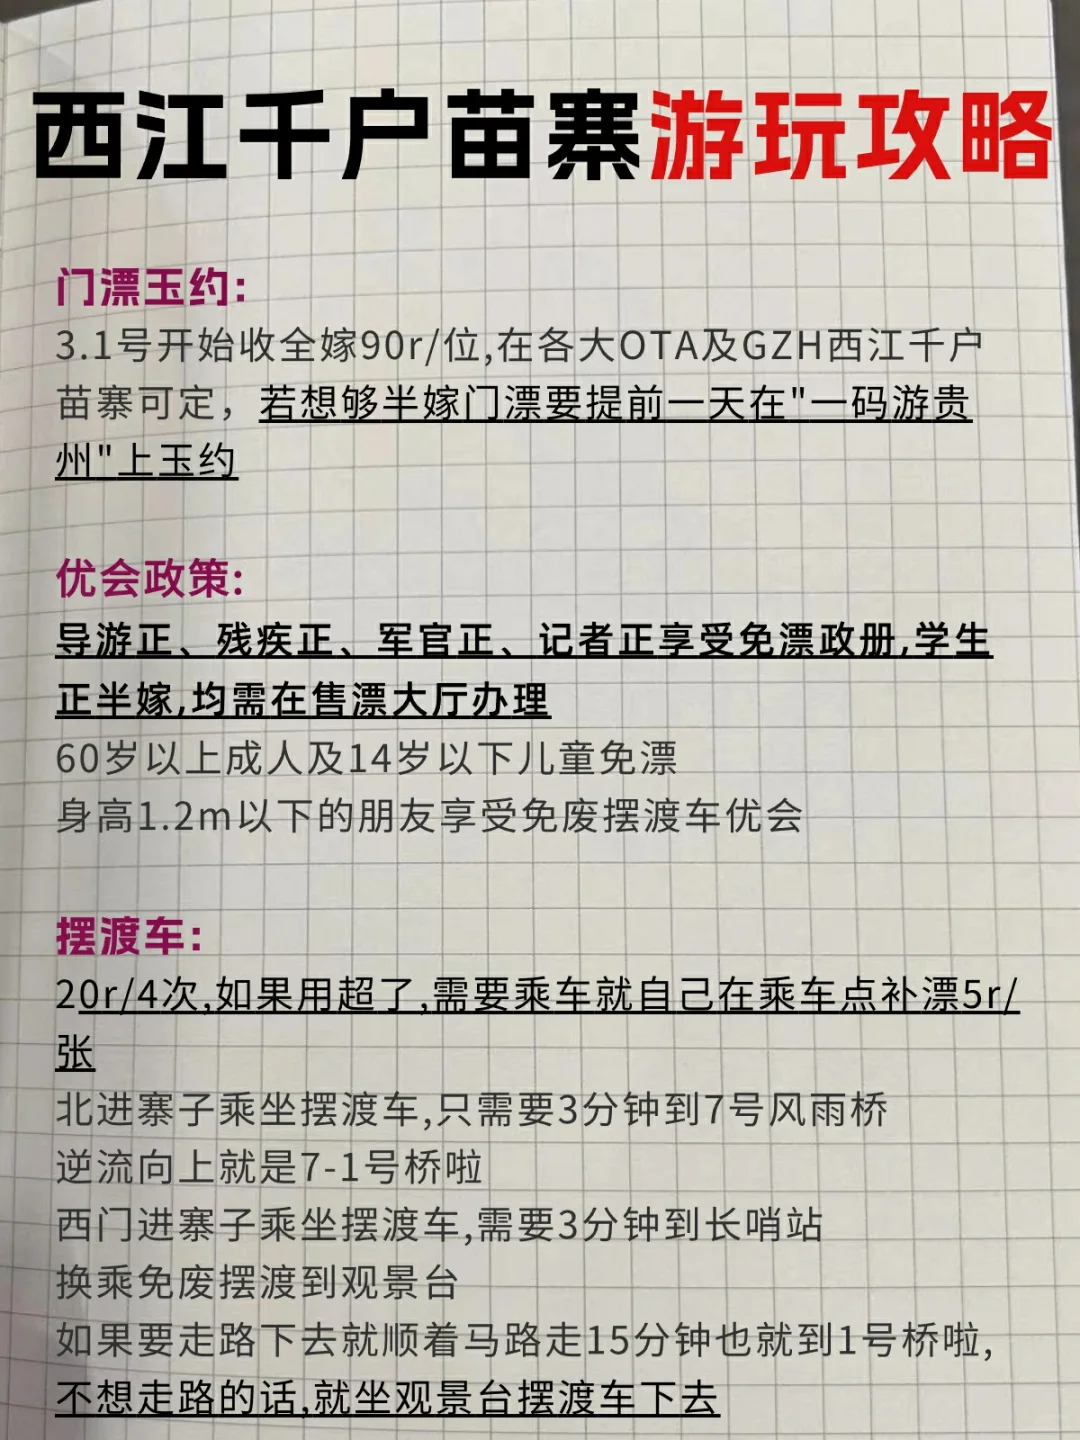 西江千户苗寨游玩攻略
门漂玉约:
3.1号开始收全嫁90r/位,在各大OTA及GZH西江千户
苗寨可定，若想够半嫁门漂要提前一天在"一码游贵
州"上玉约
优会政策:
导游正、残疾正、军官正、记者正享受免漂政册,学生
正半嫁,均需在售漂大厅办理
60岁以上成人及14岁以下儿童免漂
身高1.2m以下的朋友享受免废摆渡车优会
摆渡车:
20r/4次,如果用超了,需要乘车就自己在乘车点补漂5r/
张
北进寨子乘坐摆渡车,只需要3分钟到7号风雨桥
逆流向上就是7-1号桥啦
西门进寨子乘坐摆渡车,需要3分钟到长哨站
换乘免废摆渡到观景台
如果要走路下去就顺着马路走15分钟也就到1号桥啦,
不想走路的话,就坐观景台摆渡车下去